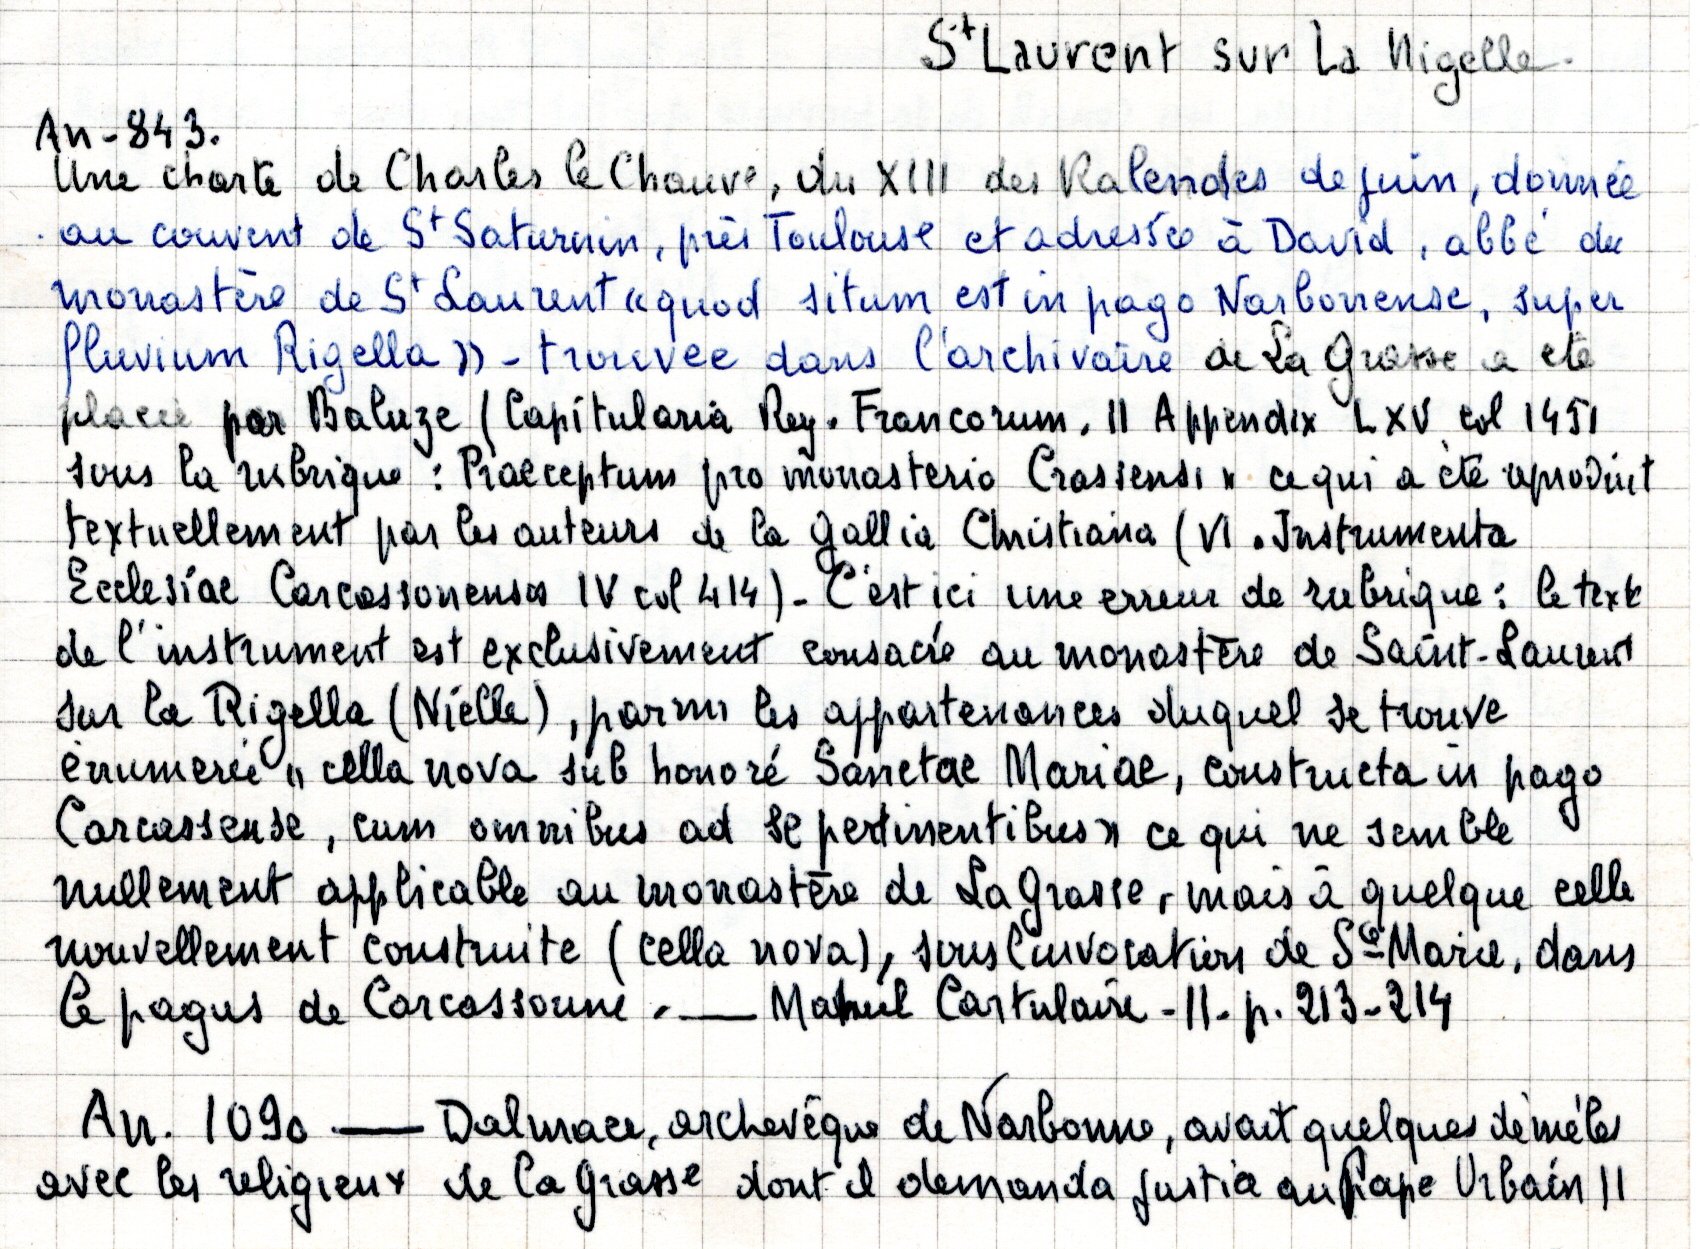 St Laurent sur La Nigelle.
An-843.
Une charte de Charles le Chauve, du XIII des Kalendes de juin, donnée
au couvent de St Saturnin, près Toulouse et adressée à David, abbé du
monastère de St Laurent «quod situm est in pago Narbonense, super
fluvium Rigella» - trouvée dans l'archivaire de La Grasse a été
placée par Baluze (Capitularia Reg. Francorum. II Appendix LXV col 1451
sous la rubrique : Praeceptum pro monasterio Crassensi» ce qui a été reproduit
textuellement par les auteurs de la Gallia Christiana (VI. Instrumenta
Ecclesíae Carcassonensis IV col 414) - C'est ici une erreur de rubrique : le texte
de l'instrument est exclusivement consacré au monastère de Saint-Laurent
sur la Rigella (Nielle), parmi les appartenances duquel se trouve
énumerée «cella nova sub honoré Sanctae Mariae, constructa in pago
Carcassense, cum omnibus ad se pertinentibus» ce qui ne semble
nullement applicable au monastère de La Grasse, mais à quelque celle
nouvellement construite (cella nova), sous l'invocation de Se Marie, dans
le pagus de Carcassonne. — Mahul Cartulaire - II - p. 213-214
An. 1090 — Dalmace, archevêque de Narbonne, avait quelques démélés
avec les religieux de La Grasse dont il demanda justice au Pape Urbain II